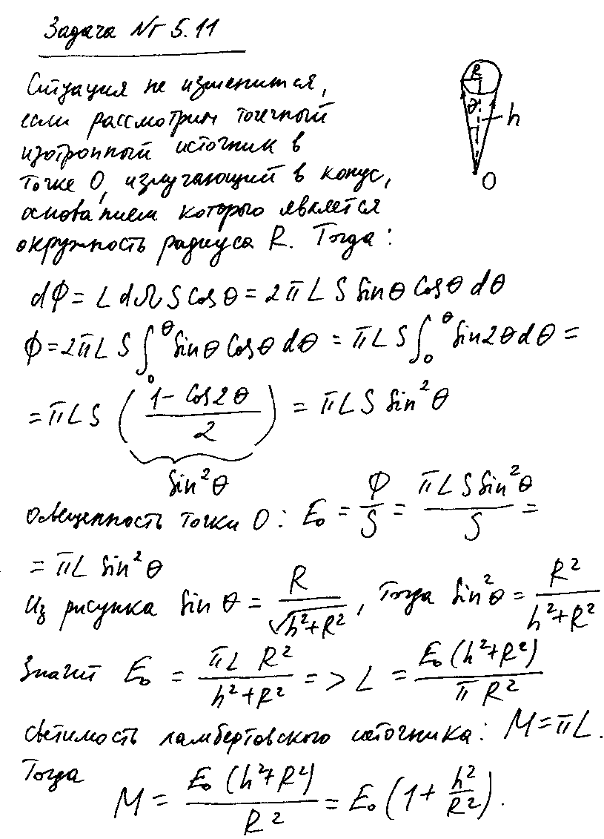 Задача № 5.11
R
θ
h
O
Ситуация не изменится,
если рассмотрим точечный
изотропный источник в
точке O, излучающий в конус,
основанием которого является
окружность радиуса R. Тогда:
dΦ = L dΩ S Cos θ = 2π L S Sin θ Cos θ dθ
Φ = 2π L S ∫₀^θ Sin θ Cos θ dθ = π L S ∫₀^θ Sin 2θ dθ =
= π L S ((1 - Cos 2θ)/2) = π L S Sin² θ
Sin² θ
Освещенность точки O: E₀ = Φ/S = (π L S Sin² θ)/S =
= π L Sin² θ
Из рисунка Sin θ = R/√(h²+R²), Тогда Sin² θ = R²/(h²+R²)
Значит E₀ = (π L R²)/(h²+R²) => L = (E₀ (h²+R²))/(π R²)
Светимость ламбертовского источника: M = π L.
Тогда
M = (E₀ (h²+R²))/R² = E₀ (1 + h²/R²).